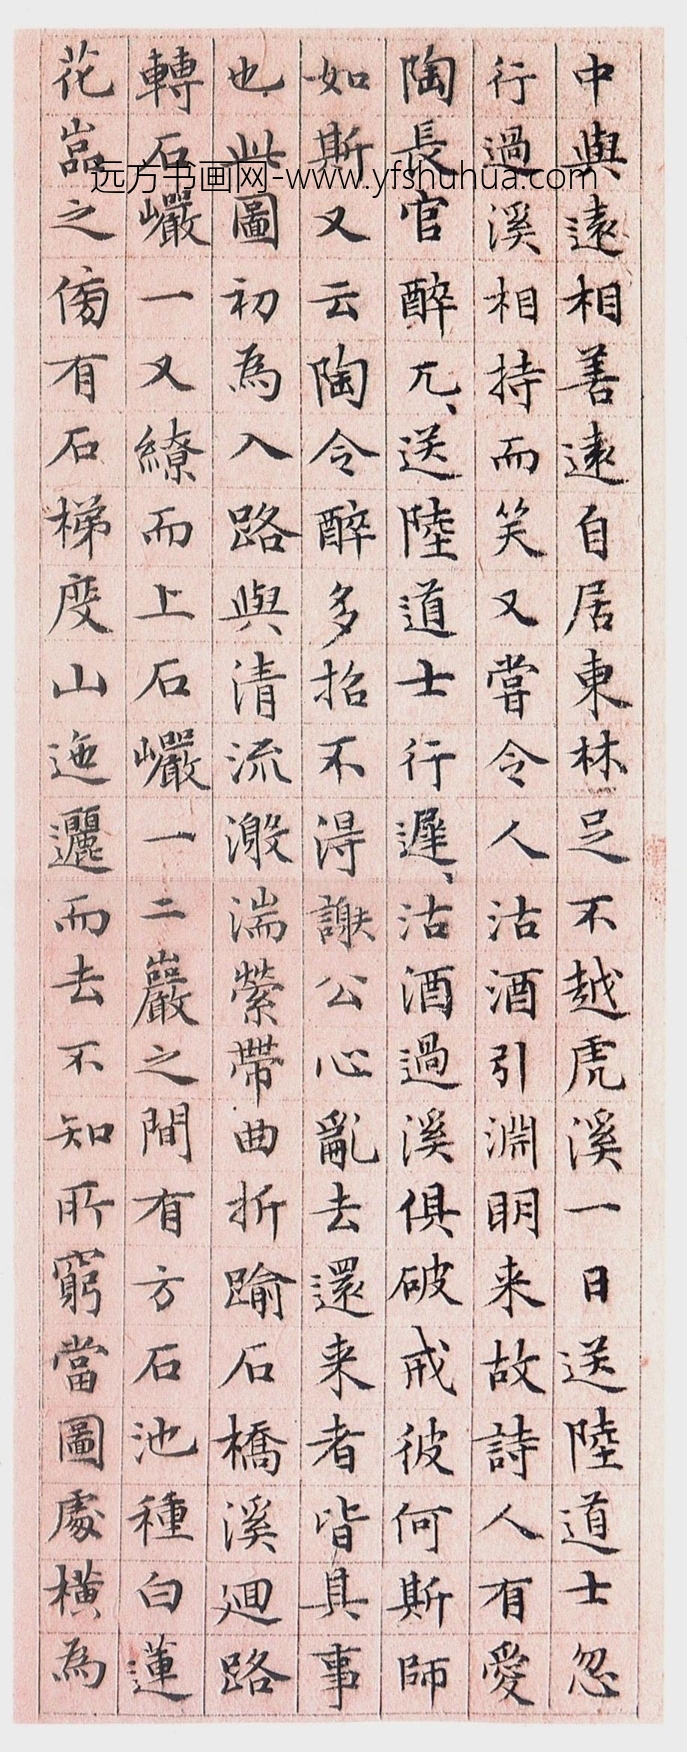 中與遠相善遠自居東林足不越虎溪一日送陸道士忽
行過溪相持而笑又嘗令人沽酒引淵明来故詩人有愛
陶長官醉兀兀送陸道士行遲遲沽酒過溪俱破戒彼何斯師
如斯又云陶令醉多招不得謝公心亂去還来者皆具事
也此圖初為入路與清流激湍縈帶曲折踰石橋溪迴路
轉石巖一又繚而上石巖一二巖之間有方石池種白蓮
花嵓之傍有石梯度山迤邐而去不知所窮當圖處橫為
远方书画网-www.yfshuhua.com